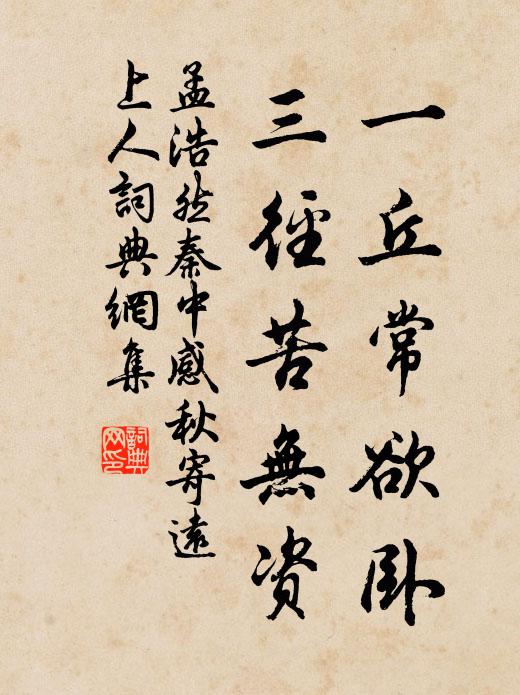 一丘常欲卧
三徑苦無資
孟浩然秦中感秋寄遠
上人詞典網集
詞典网印